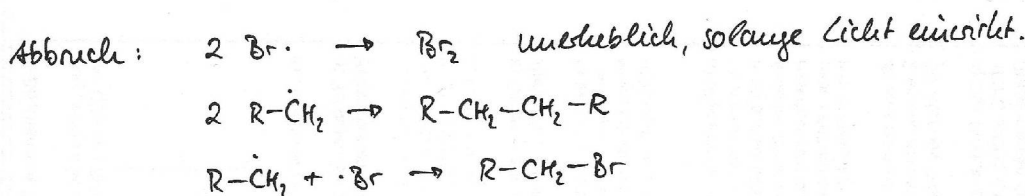 Abbruch: 2 Br· → Br₂ unerheblich, solange Licht einwirkt.
2 R-ĊH₂ → R-CH₂-CH₂-R
R-ĊH₂ + ·Br → R-CH₂-Br